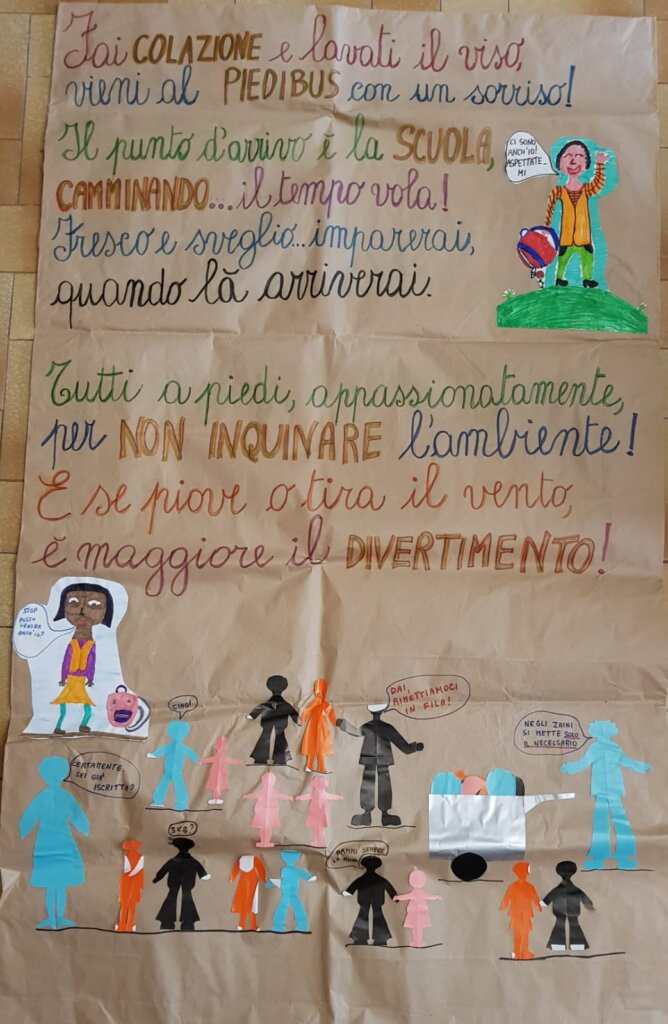 Fai COLAZIONE e lavati il viso,
vieni al PIEDIBUS con un sorriso!
Il punto d'arrivo è la SCUOLA,
CAMMINANDO...il tempo vola!
Fresco e sveglio...imparerai,
quando là arriverai.
CI SONO
ANCH'IO!
ASPETTATE
MI
Tutti a piedi, appassionatamente,
per NON INQUINARE l'ambiente!
E se piove o tira il vento,
è maggiore il DIVERTIMENTO!
STOP
POSSO
VENIRE
ANCH'IO?
CIAO!
DAI,
RIMETTIAMOCI
IN FILA!
NEGLI ZAINI
SI METTE SOLO
IL NECESSARIO
CERTAMENTE,
SEI GIÀ
ISCRITTA?
3X2?
DAMMI SEMPRE
LA MANO